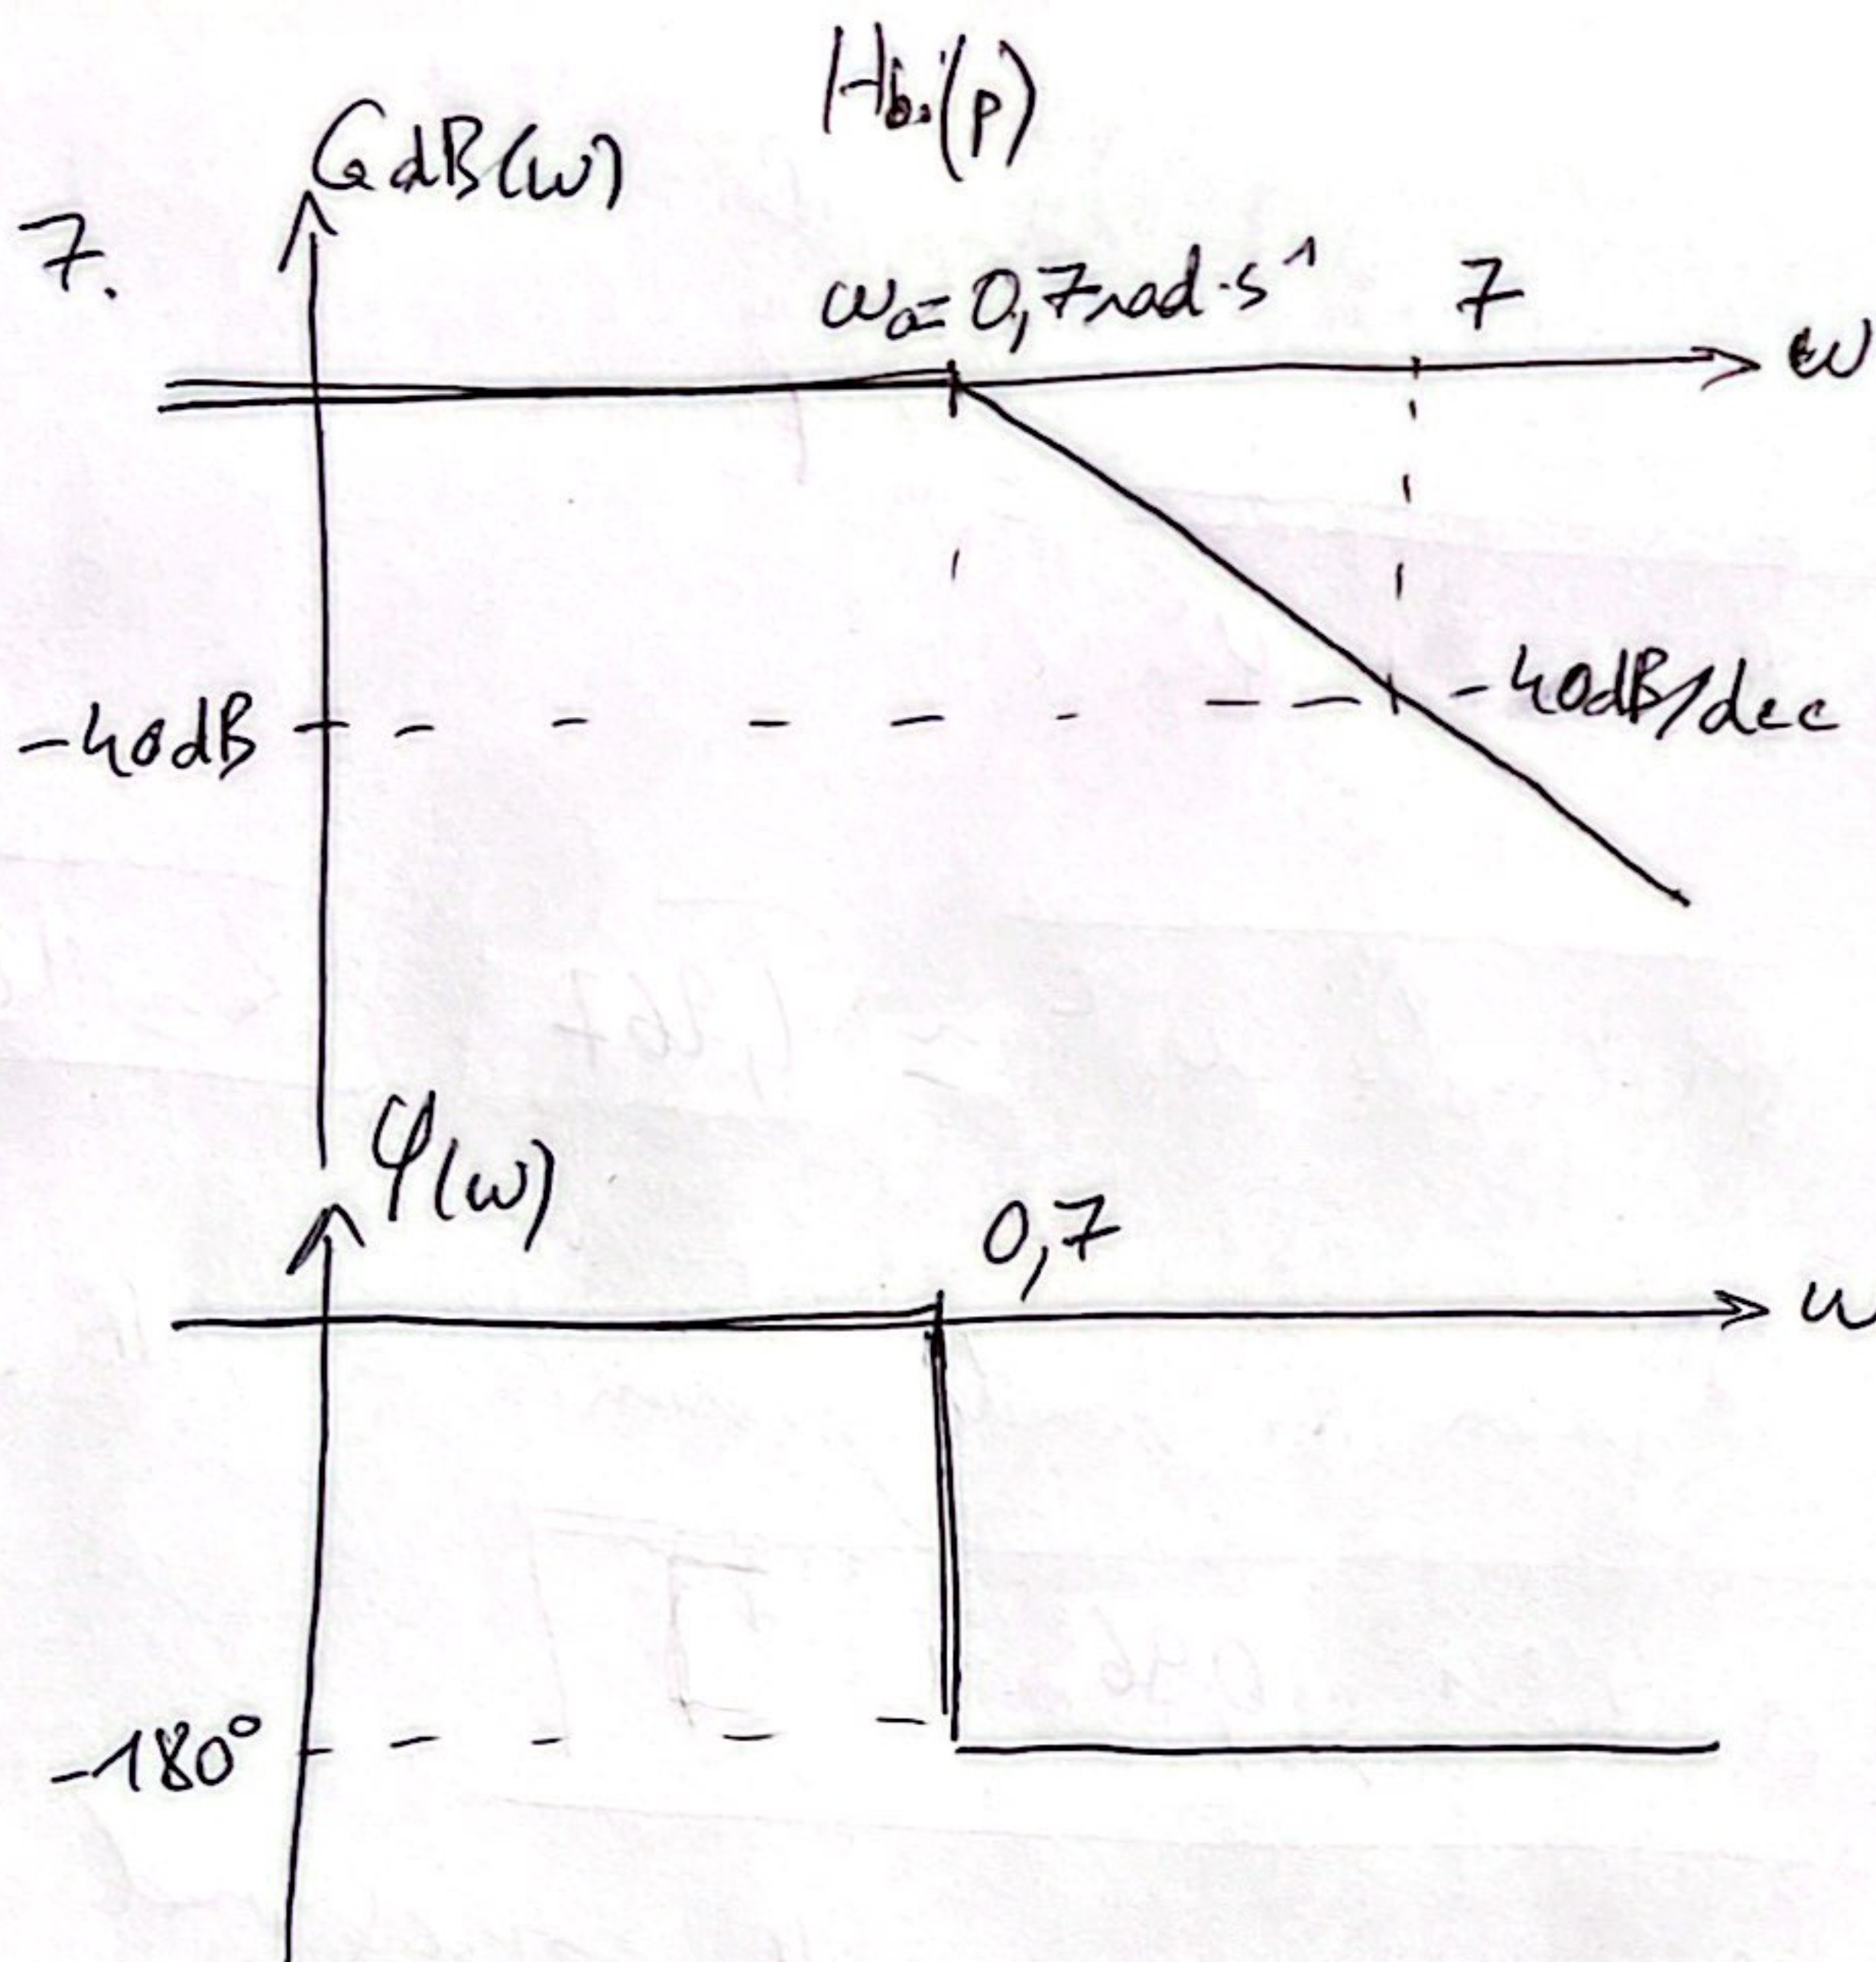 H_bo(p)
GdB(ω)
7.
ω₀= 0,7rad·s⁻¹
7
ω
-40dB
-40dB/dec
φ(ω)
0,7
ω
-180°